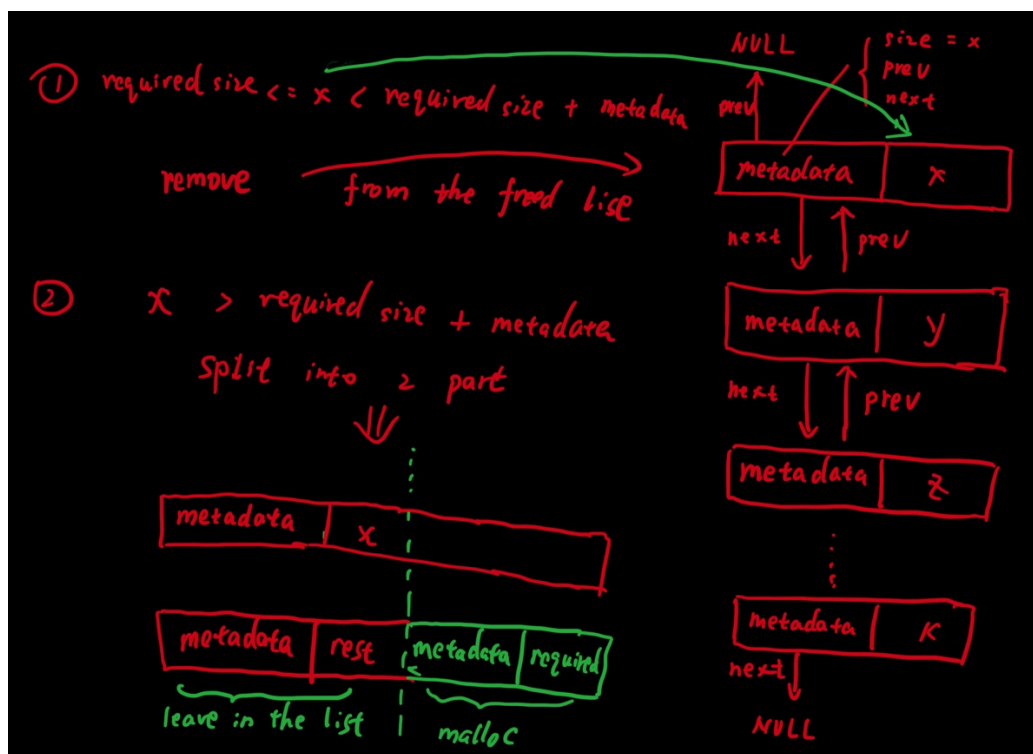 ① required size <= x < required size + metadata
remove from the freed lise
② x > required size + metadata
split into 2 part
metadata x
metadata rest metadata required
leave in the list malloc
NULL
size = x
prev
next
prev
metadata x
next prev
metadata y
next prev
metadata z
metadata K
next
NULL